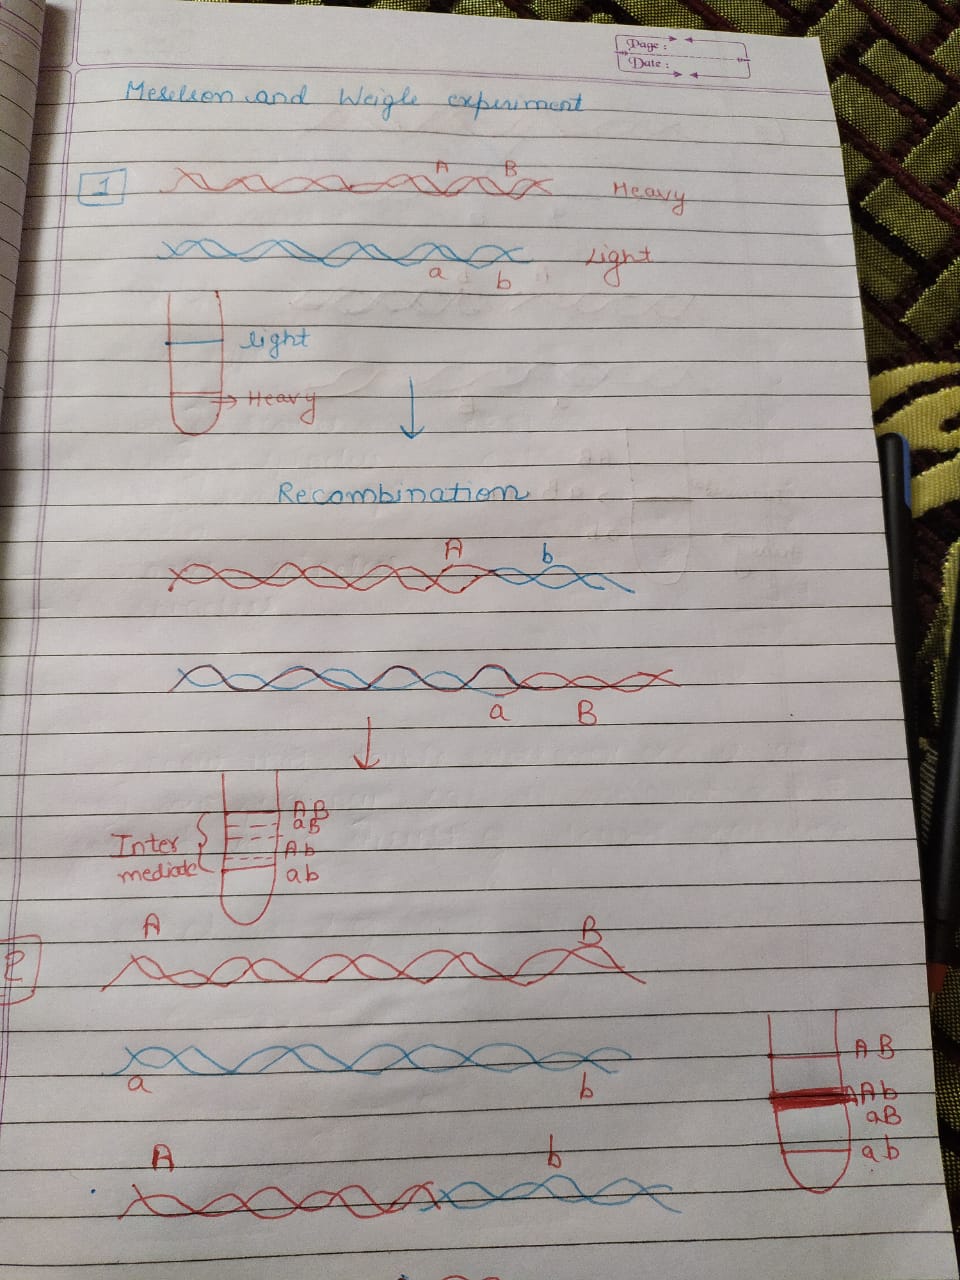 Page :
Date :
Meselson and Weigle experiment
1
A B
Heavy
Light
a b
light
Heavy
Recombination
A b
a B
AB
aB
Inter
mediate
Ab
ab
A B
2
a b
AB
Ab
aB
ab
A b